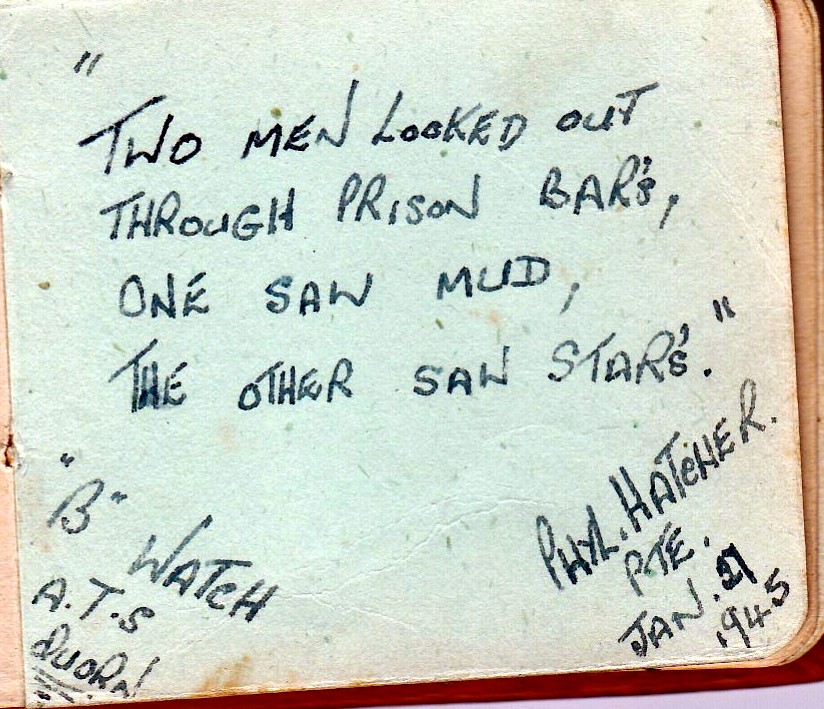 "
TWO MEN LOOKED OUT
THROUGH PRISON BAR'S,
ONE SAW MUD,
THE OTHER SAW STAR'S."
"B" WATCH
A.T.S
QUORN
PHYL. HATCHER.
PTE.
JAN. 21
1945